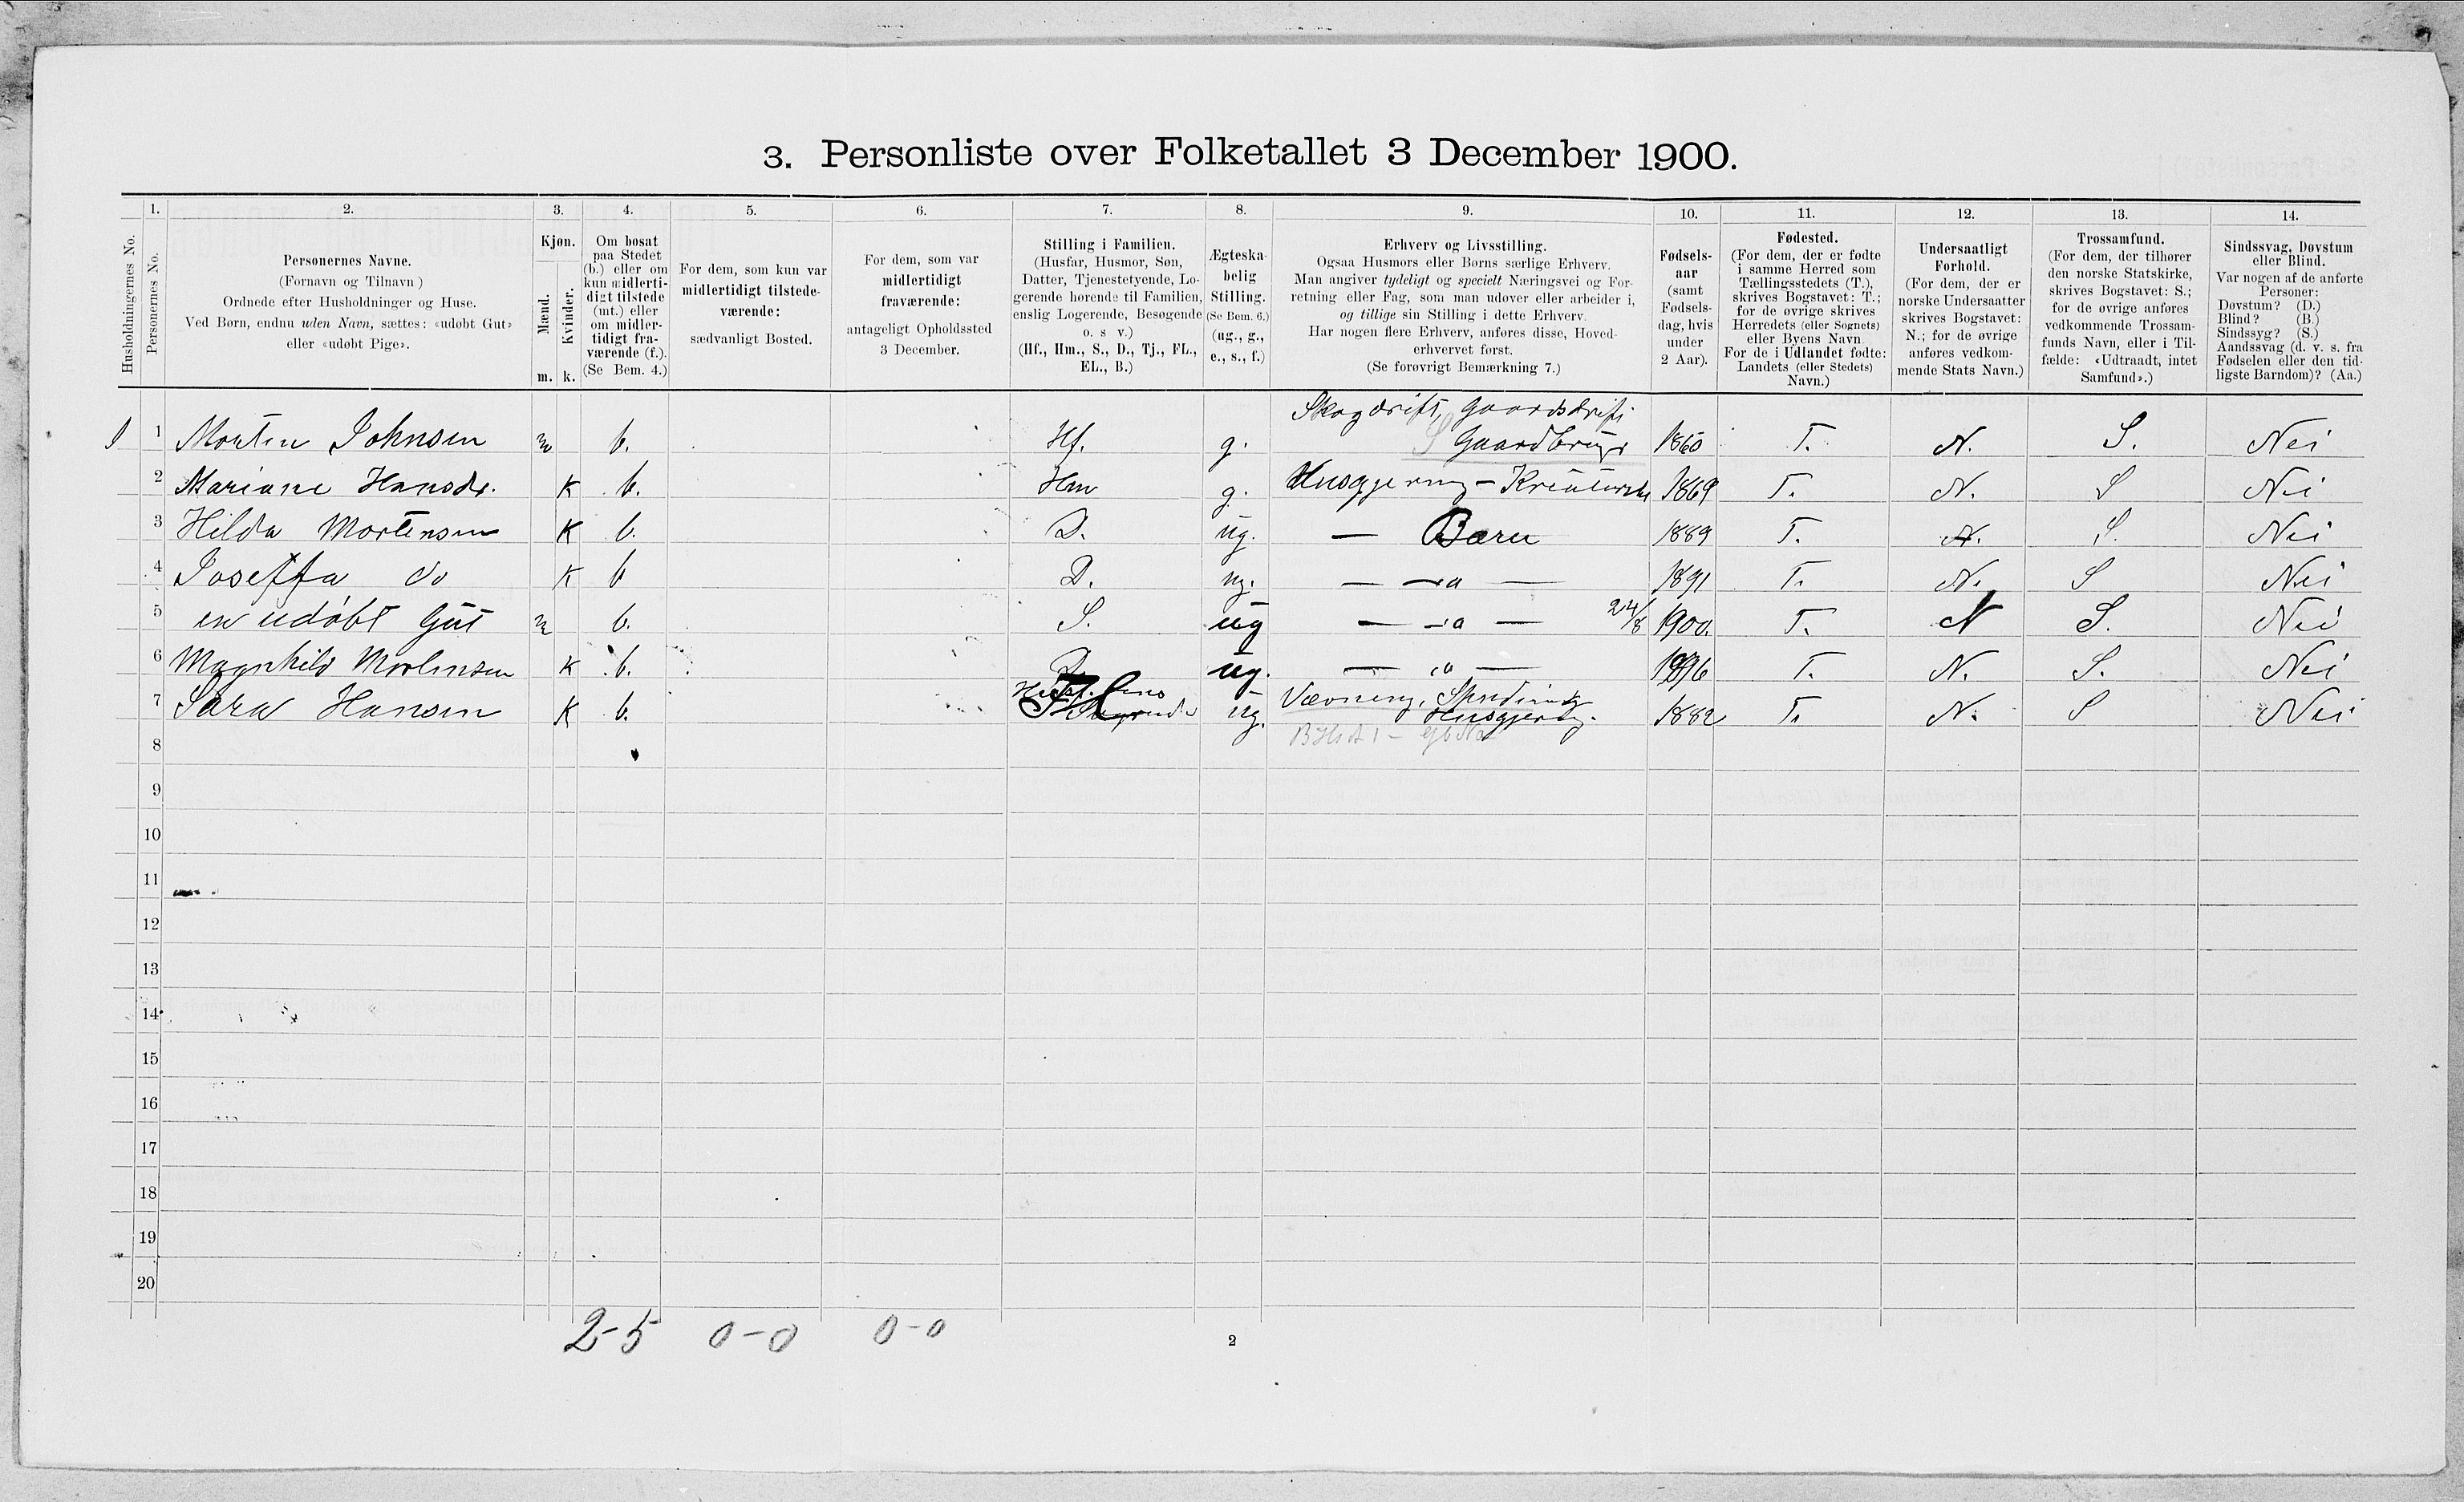 3. Personliste over Folketallet 3 December 1900.
1. 2. 3. 4. 5. 6. 7. 8. 9. 10. 11. 12. 13. 14.
Husholdningernes No.
Personernes No.
Personernes Navne.
(Fornavn og Tilnavn)
Ordnede efter Husholdninger og Huse.
Ved Børn, endnu uden Navn, sættes: «udøbt Gut»
eller «udøbt Pige».
Kjøn.
Mænd.
Kvinder.
m. k.
Om bosat
paa Stedet
(b.) eller om
kun midlerti-
digt tilstede
(mt.) eller
om midler-
tidigt fra-
værende (f.).
(Se Bem. 4.)
For dem, som kun var
midlertidigt tilstede-
værende:
sædvanligt Bosted.
For dem, som var
midlertidigt
fraværende:
antageligt Opholdssted
3 December.
Stilling i Familien.
(Husfar, Husmor, Søn,
Datter, Tjenestetyende, Lo-
gerende hørende til Familien,
enslig Logerende, Besøgende
o. s v.)
(Hf., Hm., S., D., Tj., FL.,
EL., B.)
Ægteska-
belig
Stilling.
(Se Bem. 6.)
(ug., g.,
e., s., f.)
Erhverv og Livsstilling.
Ogsaa Husmors eller Børns særlige Erhverv.
Man angiver tydeligt og specielt Næringsvei og For-
retning eller Fag, som man udøver eller arbeider i,
og tillige sin Stilling i dette Erhverv.
Har nogen flere Erhverv, anføres disse, Hoved-
erhvervet først.
(Se forøvrigt Bemærkning 7.)
Fødsels-
aar
(samt
Fødsels-
dag, hvis
under
2 Aar).
Fødested.
(For dem, der er fødte
i samme Herred som
Tællingsstedets (T.),
skrives Bogstavet: T.;
for de øvrige skrives
Herredets (eller Sognets)
eller Byens Navn.
For de i Udlandet fødte:
Landets (eller Stedets)
Navn.)
Undersaatligt
Forhold.
(For dem, der er
norske Undersaatter
skrives Bogstavet:
N.; for de øvrige
anføres vedkom-
mende Stats Navn.)
Trossamfund.
(For dem, der tilhører
den norske Statskirke,
skrives Bogstavet: S.;
for de øvrige anføres
vedkommende Trossam-
funds Navn, eller i Til-
fælde: «Udtraadt, intet
Samfund».)
Sindssvag, Døvstum
eller Blind.
Var nogen af de anførte
Personer:
Døvstum? (D.)
Blind? (B.)
Sindssyg? (S.)
Aandssvag (d. v. s. fra
Fødselen eller den tid-
ligste Barndom)? (Aa.)
Skogdrift, Gaardsdrift
1 Morten Johnsen m b. Hf. g. Gaardbruger 1860 T. N. S. Nei
2 Mariane Hansdr. K b. Hm g. Husgjerning - 1869 T. N. S Nei
3 Hilda Mortensen K b. D. ug. — Barn 1889 T. N. S. Nei
4 Joseffa do K b D. ug. — — 1891 T. N. S Nei
5 en udøbt Gut m b. S. ug — — 24/8 1900. T. N S. Nei
6 Magnhild Mortensen K b. D. ug. — — 1896 T. N. S. Nei
Vævning, Spinding
7 Sara Hansen K b. ug. Husgjerning. 1882 T. N. S Nei
8
9
10
11
12
13
14
15
16
17
18
19
20
2-5 0-0 0-0
2